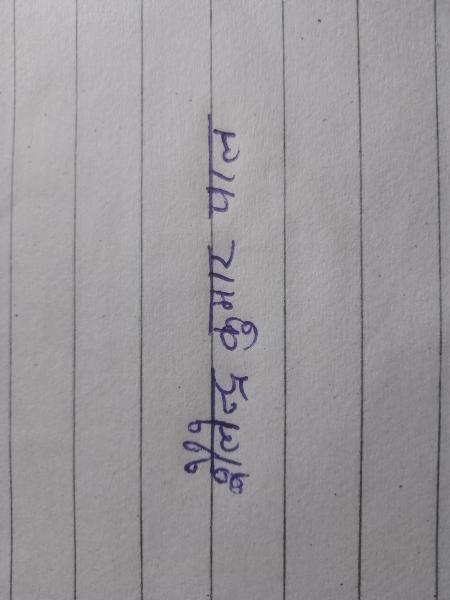 शैलेन्द्र कुमार पाल